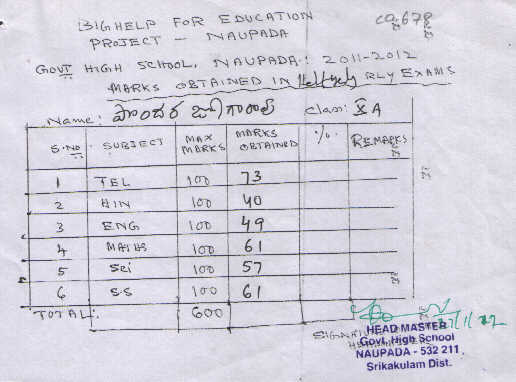 BIGHELP FOR EDUCATION
PROJECT - NAUPADA
GOVT HIGH SCHOOL, NAUPADA: 2011-2012
MARKS OBTAINED IN RLY EXAMS
Name: Class: X A
S.NO SUBJECT MAX MARKS MARKS OBTAINED %. REMARKS
1 TEL 100 73
2 HIN 100 40
3 ENG 100 49
4 MATHS 100 61
5 Sci 100 57
6 S.S 100 61
TOTAL: 600
HEAD MASTER
Govt. High School
NAUPADA - 532 211
Srikakulam Dist.